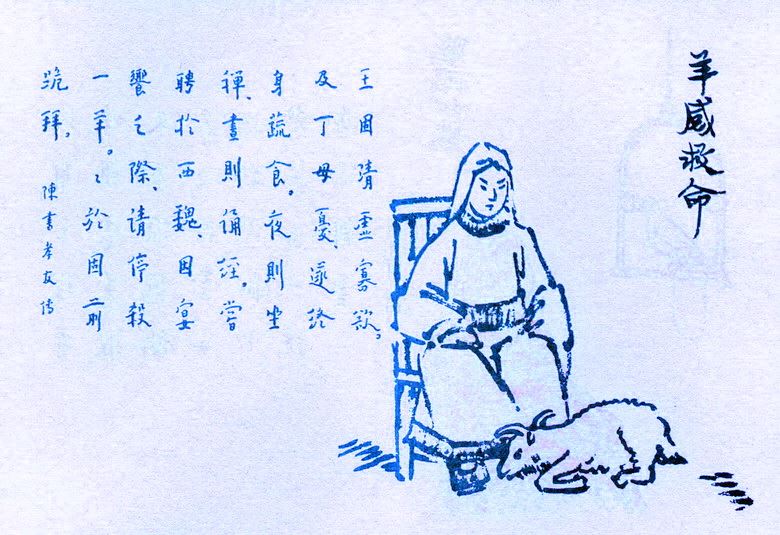 羊感救命
王固清虛寡欲。
及丁母憂遂終
身蔬食。夜則坐
禪、晝則誦經。嘗
聘於西魏、因宴
饗之際、請停殺
一羊。〻於固前
跪拜。
陳書孝友傳